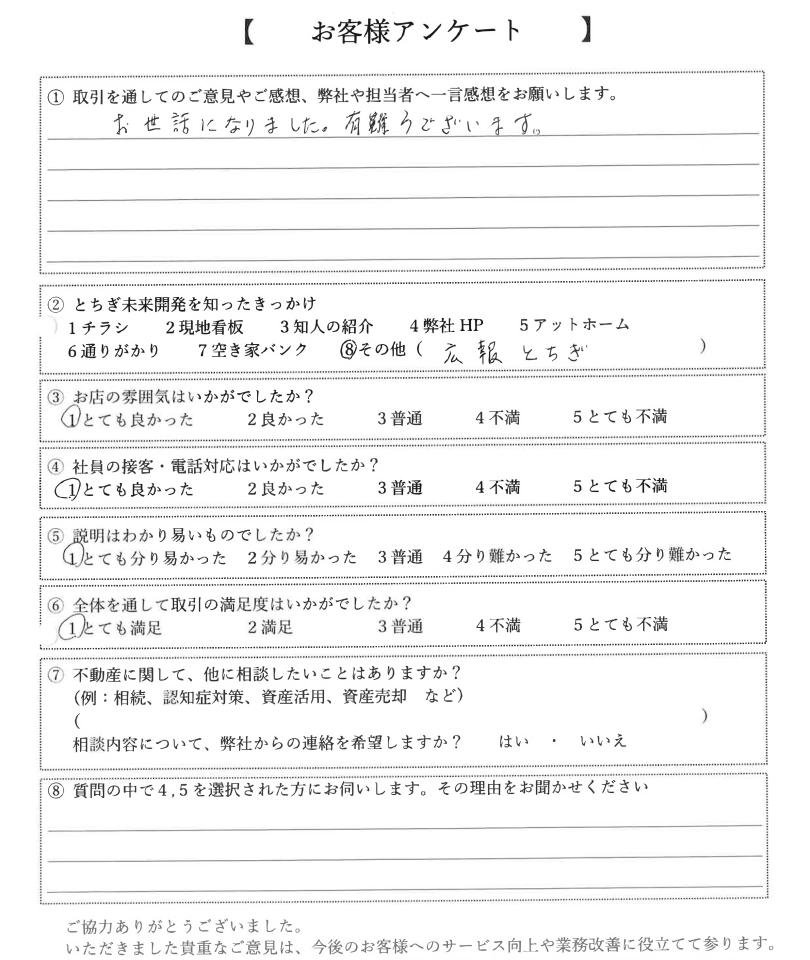 【　お客様アンケート　】
① 取引を通してのご意見やご感想、弊社や担当者へ一言感想をお願いします。
お世話になりました。有難うございます。
② とちぎ未来開発を知ったきっかけ
1チラシ　2現地看板　3知人の紹介　4弊社HP　5アットホーム
6通りがかり　7空き家バンク　⑧その他（　広報とちぎ　）
③ お店の雰囲気はいかがでしたか？
1とても良かった　2良かった　3普通　4不満　5とても不満
④ 社員の接客・電話対応はいかがでしたか？
1とても良かった　2良かった　3普通　4不満　5とても不満
⑤ 説明はわかり易いものでしたか？
1とても分り易かった　2分り易かった　3普通　4分り難かった　5とても分り難かった
⑥ 全体を通して取引の満足度はいかがでしたか？
1とても満足　2満足　3普通　4不満　5とても不満
⑦ 不動産に関して、他に相談したいことはありますか？
（例：相続、認知症対策、資産活用、資産売却　など）
（　）
相談内容について、弊社からの連絡を希望しますか？　はい　・　いいえ
⑧ 質問の中で4,5を選択された方にお伺いします。その理由をお聞かせください
ご協力ありがとうございました。
いただきました貴重なご意見は、今後のお客様へのサービス向上や業務改善に役立てて参ります。